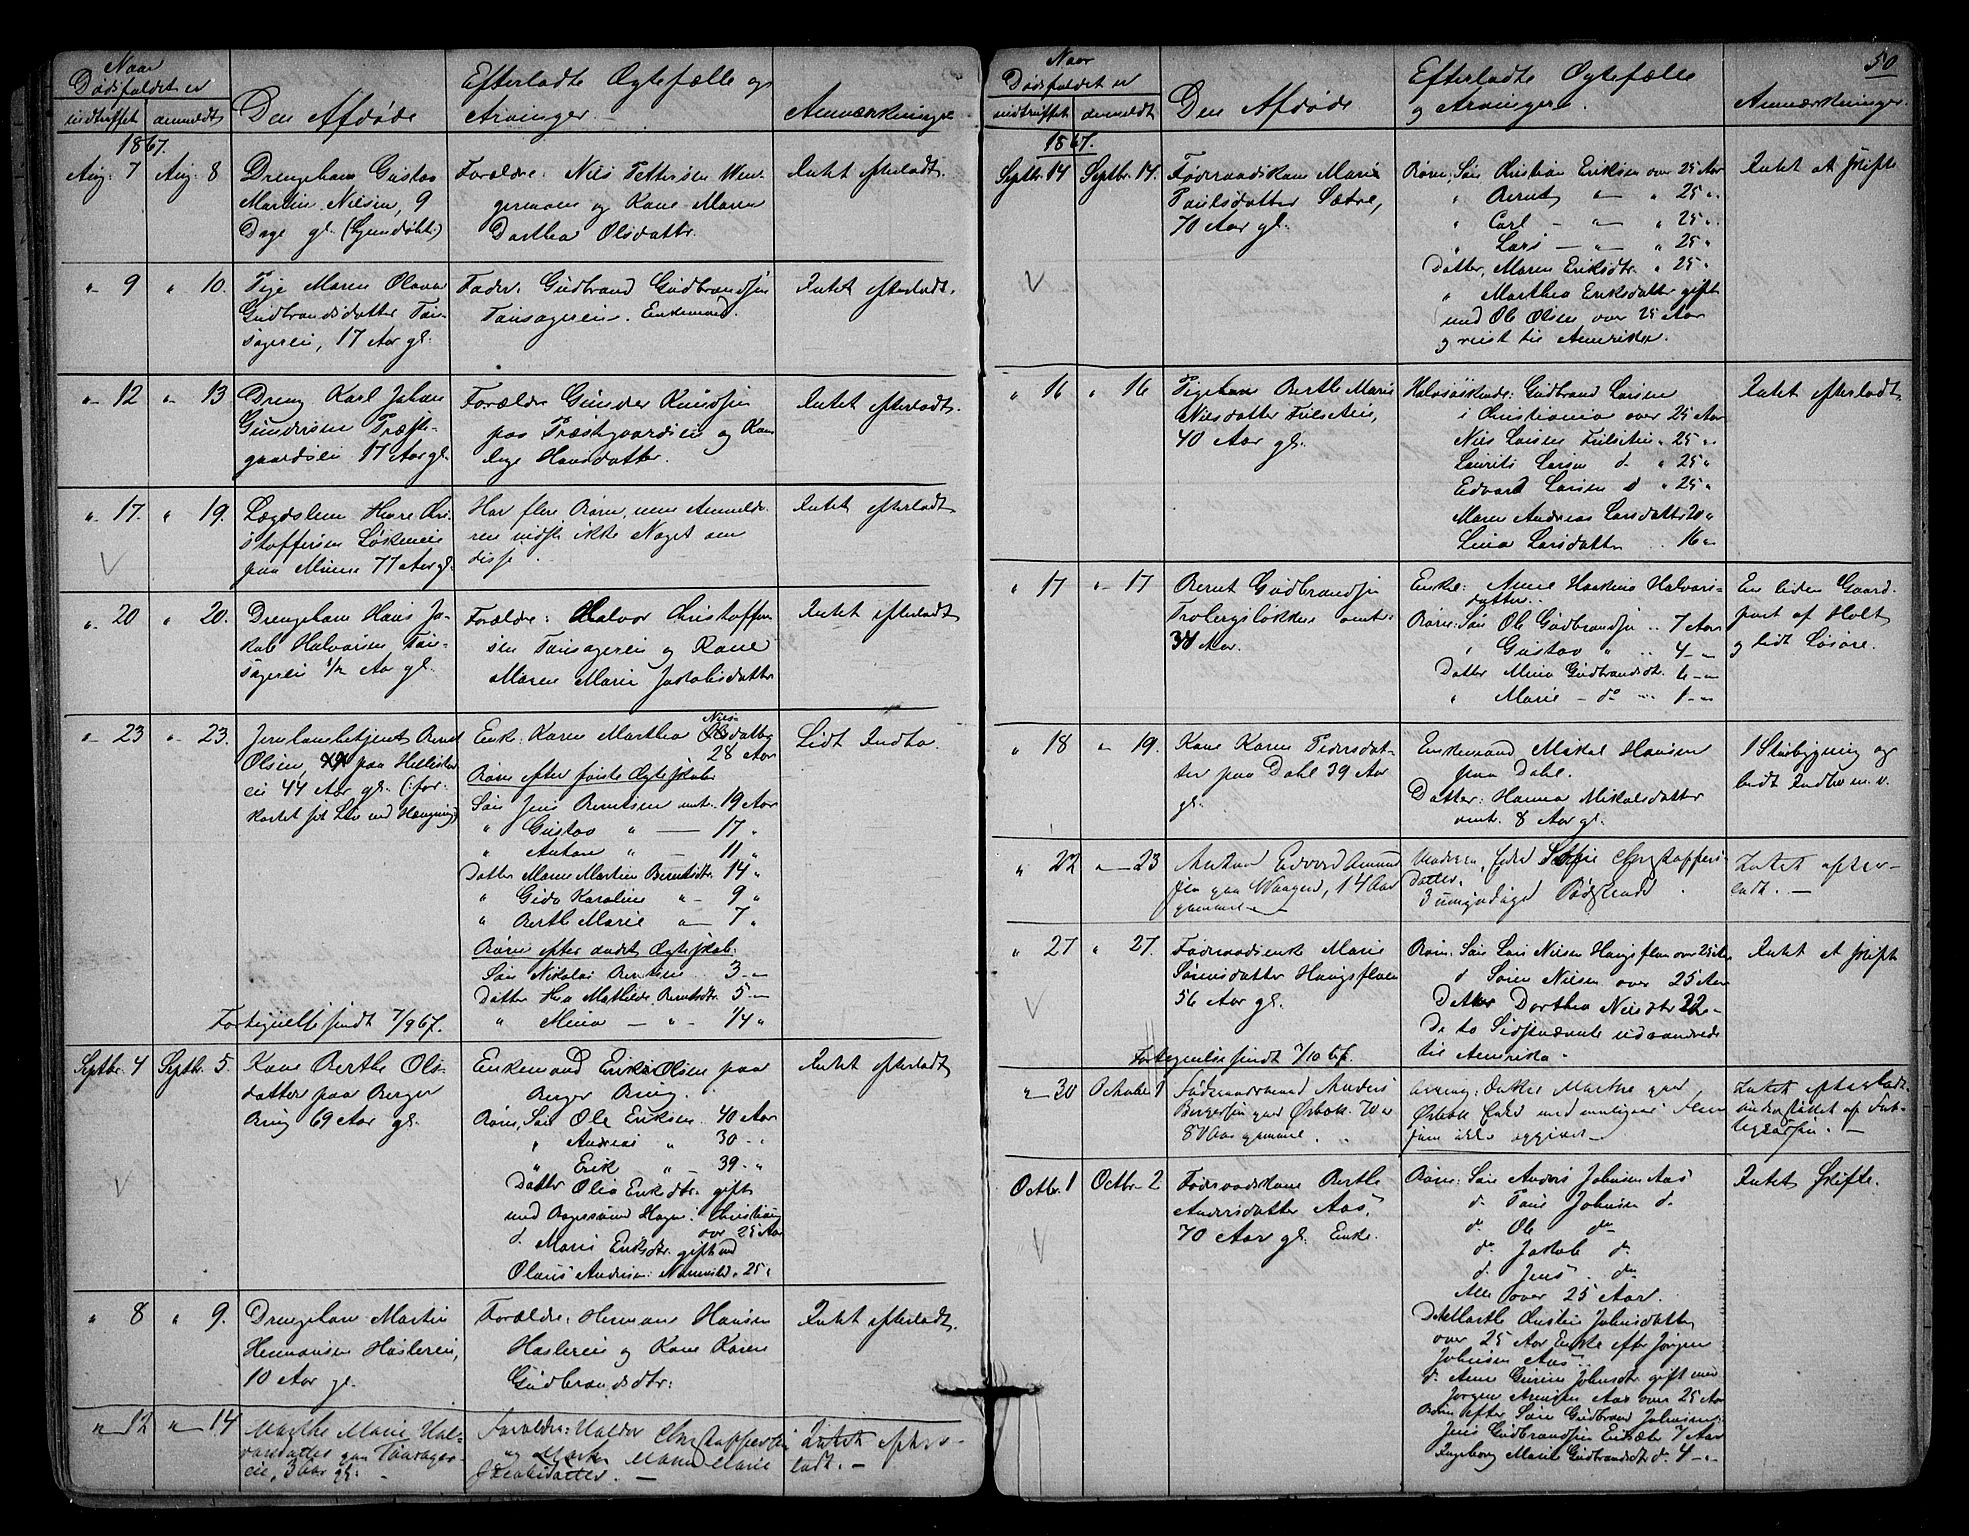 Naar
Dødsfaldet er
indtruffet anmeldt
Den Afdøde
Efterladte Ægtefælle og
Arvinger
Anmærkninger
1867.
Aug. 7 Aug. 8
Drengebarn Gustav
Martin Nilsen, 9
Dage gl.
Forældre: Nils Pettersen Wen-
germoen og Kone Maren
Dorthea Olsdatter.
Intet efterladt.
" 9 " 10.
Pige Maren Olava
Gudbrandsdatter Tan-
sagerei, 17 Aar gl.
Fader: Gudbrand Gudbrandsen
Tansagereie. Enkemand.
Intet efterladt.
" 12 " 13
Dreng Karl Johan
Gundersen Præste-
gaardsei 17 Aar gl.
Forældre Gunder Knudsen
paa Præstegaardseie og Kone
Hansdatter.
Intet efterladt.
" 17. " 19.
Lægdslem Hans Kri-
stoffersen Løkeneie
paa Moen 77 Aar gl.
Har flere Børn, men Anmelde-
ren vidste ikke Noget om
disse.
Intet efterladt
" 20 " 20.
Drengebarn Hans Ja-
kob Halvorsen Tan-
sagerei 1/2 Aar gl.
Forældre: Halvor Christoffer-
sen Tansagerei og Kone
Maren Marie Jakobsdatter
Intet efterladt
" 23 " 23.
Jernbanebetjent Bernt
Olsen, paa Hellister-
ei 44 Aar gl. (: for-
kortet sit Liv ved Hængning)
Enke: Karen Marthea Nils-
datter
28 Aar
Børn efter første Ægteskab:
Søn Jens Berntsen omt. 19 Aar
" Gustav " — 17 "
" Anton " — 11 "
Datter Maren Martine Berntsdtr. 14 "
" Gida Karoline " - 9 "
" Berthe Marie " - 7 "
Børn efter andet Ægteskab:
Søn Nikolai Berntsen 3 -"
Datter Hea Mathilde Berntsdtr. 5 -"
" Mina - " - 1/4 "
Lidt Indbo.
Fortegnelse sendt 7/9 67.
Septbr. 4 Septbr. 5.
Kone Berthe Ols-
datter paa Berger
Ring 69 Aar gl.
Enkemand Erik Olsen paa
Berger Ring.
Børn, Søn Ole Eriksen 40 Aar
" Andreas " 30 - "
" Erik " - 39 - "
Datter Olia Eriksdtr. gift
med Bagersvend Hagen i Christiania
over 25 Aar
d. Maren Eriksdtr. gift med
Olaus Andersen 25 "
Intet efterladt
" 8 " 9.
Drengebarn Martin
Hermansen Haslereie,
10 Aar gl.
Forældre: Herman Hansen
Haslereie og Kone Karen
Gudbrandsdtr.
Intet efterladt.
" 12 " 14
Marthe Marie Hal-
vorsdatter paa Tansager-
eie, 3 Aar gl.
Forældre: Halvor Christoffersen
og Maren Marie
Jakobsdatter. —
Intet efter-
ladt. —
50
Naar
Dødsfaldet er
indtruffet anmeldt
Den Afdøde
Efterladte Ægtefælle
og Arvinger.
Anmærkninger.
1867.
Septbr. 14 Septbr. 14.
Føderaadskone Marie
Paulsdatter Sætre,
70 Aar gl.
Børn: Søn Kristian Eriksen over 25 Aar
" Bernt " — " 25 "
" Carl — " — " 25 "
" Lars — " — " 25 "
Datter, Maren Eriksdtr. " 25 "
" Marthea Eriksdatter gift
med Ole Olsen over 25 Aar
og reist til Amerika.
Intet at skifte
" 16 " 16
Pigebarn Berthe Marie
Nilsdatter Fulseteie,
40 Aar gl.
Halvsøskende: Gudbrand Larsen
i Christiania over 25 Aar
Nils Larsen Fulsetei " 25 "
Laurits Larsen d. " 25 "
Edvard Larsen d " 25 "
Maren Andrea Larsdatter 20 "
Lina Larsdatter .. 16 "
Intet efterladt.
" 17 " 17
Bernt Gudbrandsen
Trobergsløkken omtr.
38 Aar.
Enke: Anne Halvors-
datter..
Børn: Søn Ole Gudbrandsen .. 7 Aar
" Gustav " .. 4 - "
Datter Mina Gudbrandsdtr. 6 - "
" Marie - do " 1 - "
En liden Gaard-
part af Holt
og lidt Løsøre.
" 18 " 19.
Kone Karen Pedersdat-
ter paa Dahl 39 Aar
gl.
Enkemand Mikel Hansen
paa Dahl.
Datter: Hanna Mikalsdatter
omtr. 8 Aar gl.
1 Stuebygning og
lidt Indbo m. v.
" 22 " 23
Anton Edvard Amund-
sen paa Waagen, 14 Aar
gammel —
Moderen, Christoffers-
datter.
3 umyndige Sødskende.
Intet efter-
ladt. —
" 27 " 27.
Føderaadsenke Marie
Sørensdatter Haugsfløen
56 Aar gl.
Børn: Søn Lars Nilsen Haugsfløen over 25 Aar
d Søren Nilsen over 25 Aar
Datter Dorthea Nilsdtr 22 " -
De to Sidstnævnte udvandrede
til Amerika.
Intet at skifte
Fortegnelse sendt 7/10 67.
" 30 October 1
Føderaadsmand Anders
Bergersen paa Ørbæk. 70 a
80 Aar gammel.
Arving: Enken Marthe paa
Ørbæk
som ikke opgivet —
Intet efterladt.
understøttet af Fat-
tigkassen. —
Octbr. 1 Octbr. 2
Føderaadskone Berthe
Andersdatter Aas,
70 Aar gl. Enke.
Børn: Søn Anders Johnsen Aas
d. Paul Johnsen d.
d. Ole do
do Jakob d.
d. Jens . do
Alle over 25 Aar.
Dat Marthe Kristine Johnsdatter
over 25 Aar Enke efter Jørgen
Johnsen Aas..
d. Anne Gurine Johnsdtr gift med
Jørgen Arnesen Aas over 25 Aar
Børn efter Søn Gudbrand Johnsen:
Jens Gudbrandsen Eidsæte 7 Aar
Ingeborg Marie Gudbrandsdtr d. 4 - "
Intet Skifte.